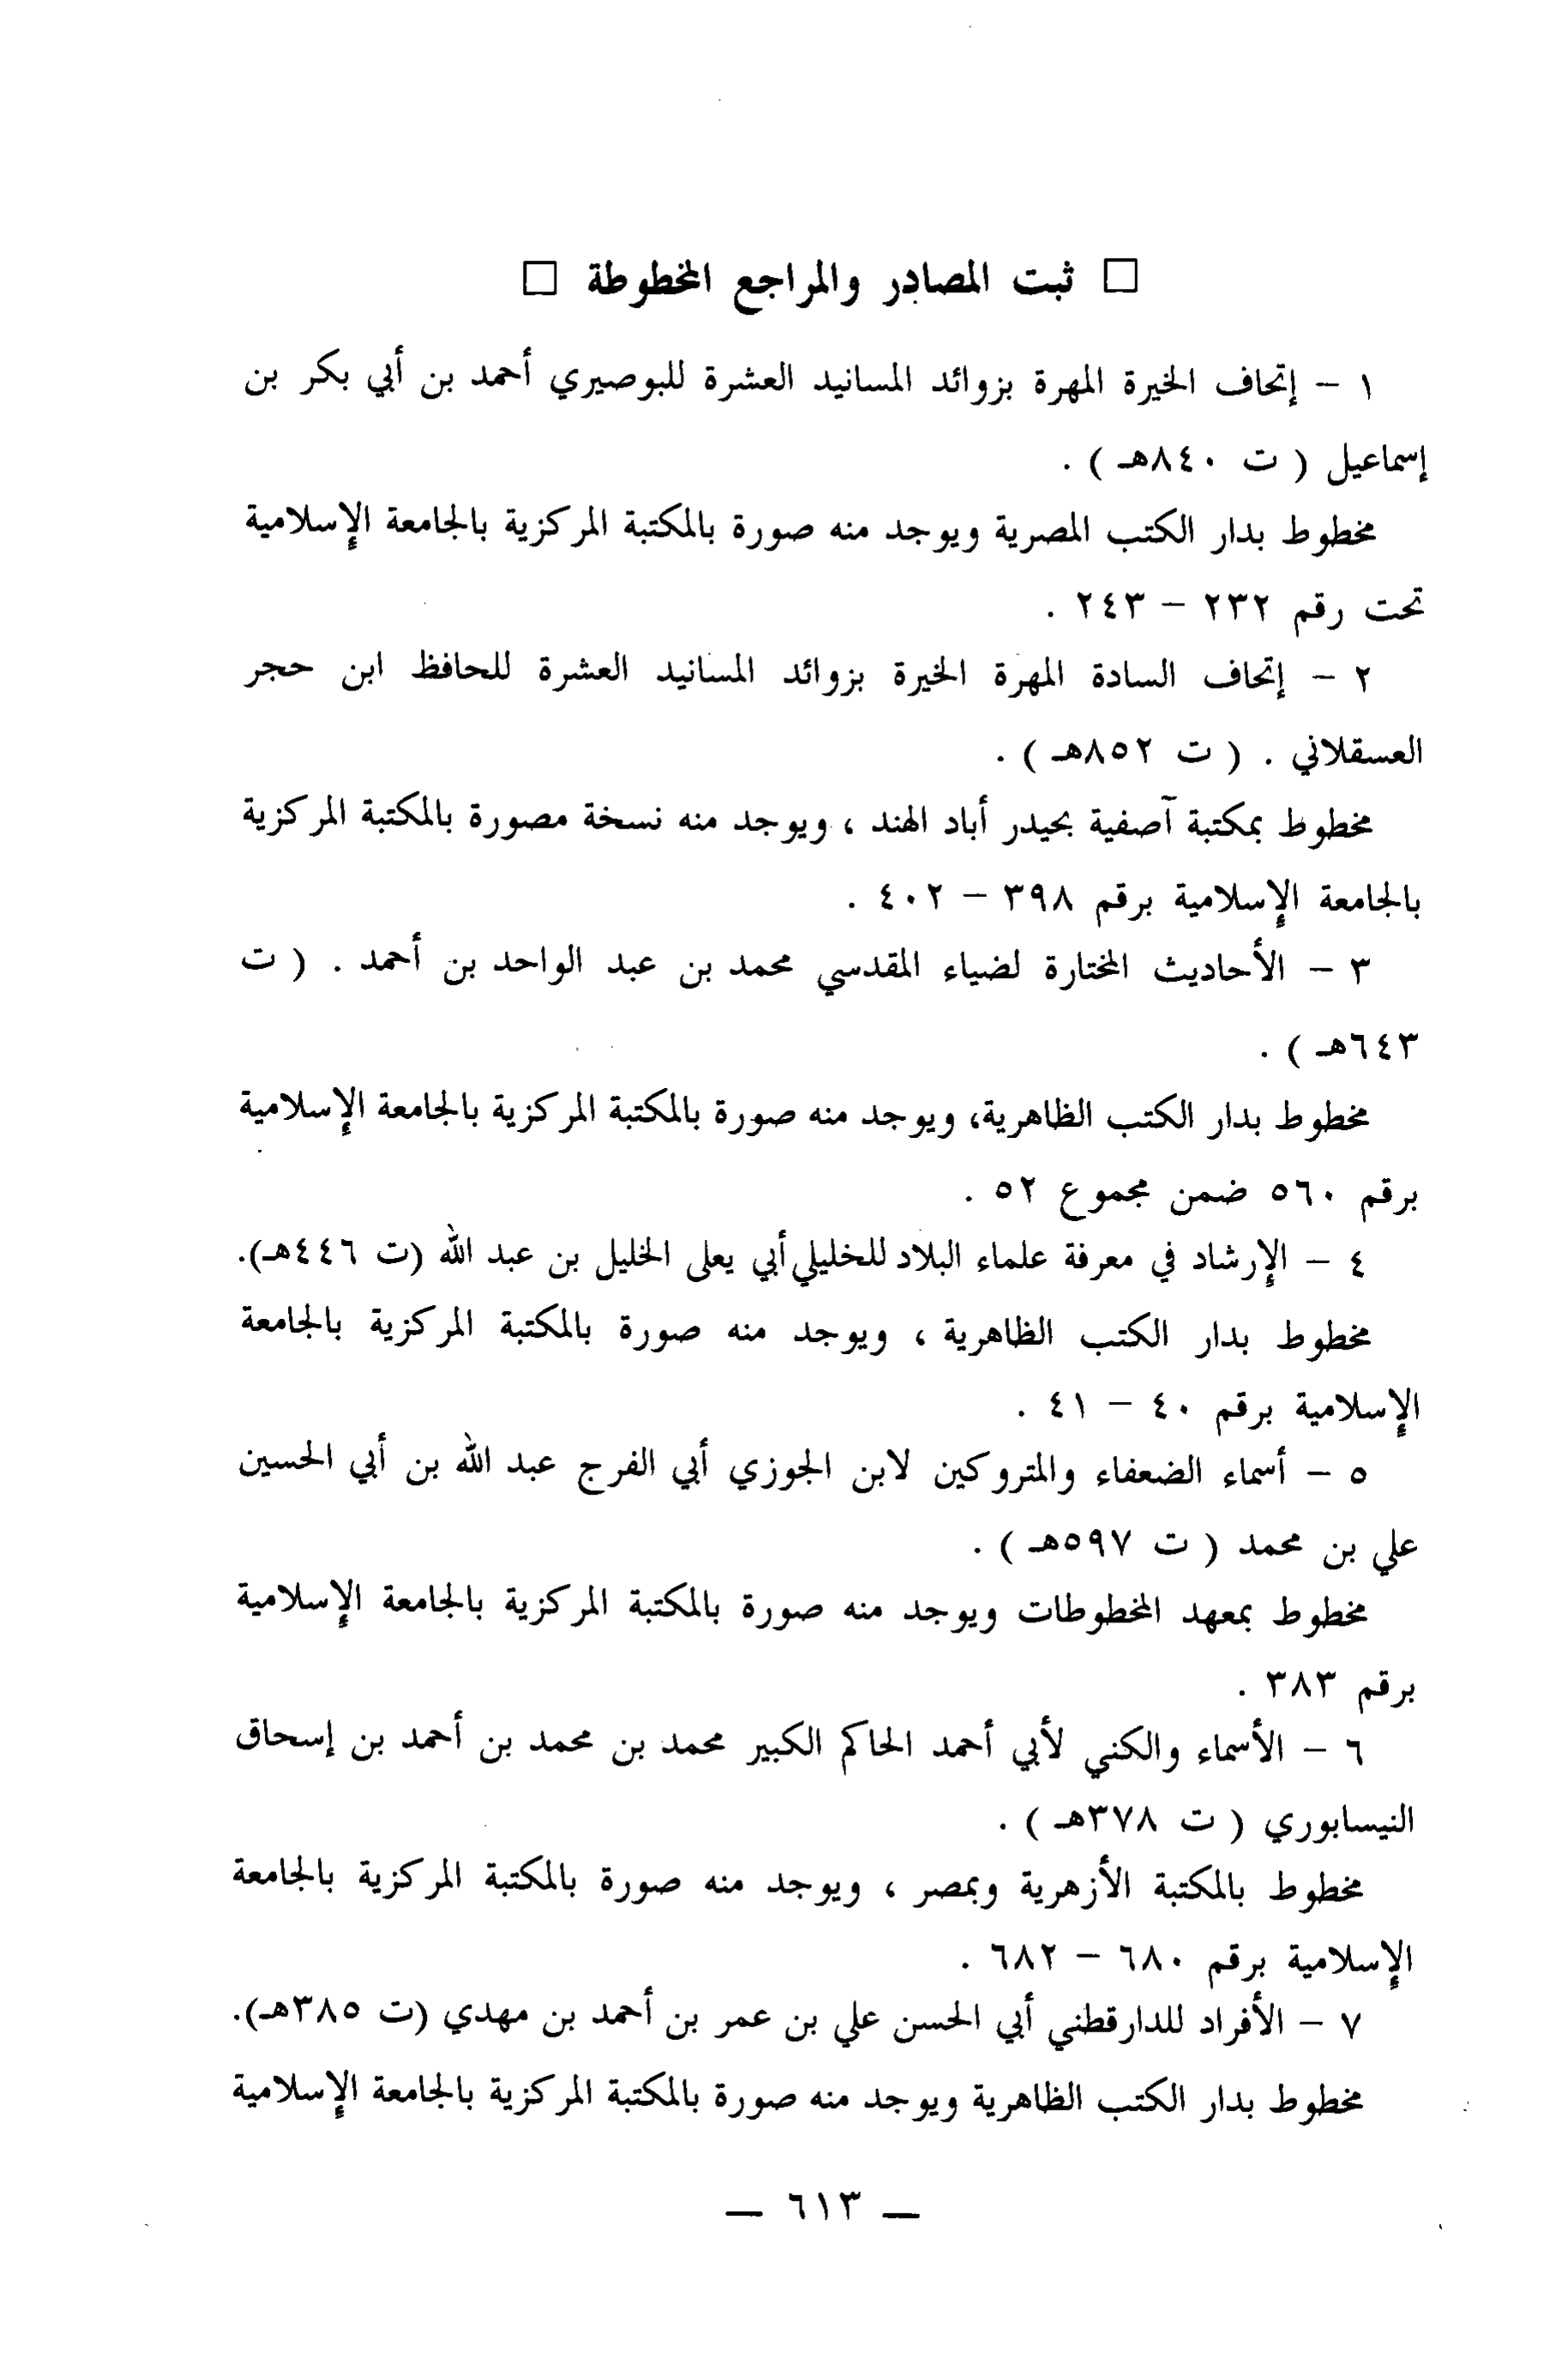 □ ثبت المصادر والمراجع المخطوطة □
١ – إتحاف الخيرة المهرة بزوائد المسانيد العشرة للبوصيري أحمد بن أبي بكر بن
إسماعيل ( ت ٨٤٠هـ ) .
مخطوط بدار الكتب المصرية ويوجد منه صورة بالمكتبة المركزية بالجامعة الإسلامية
تحت رقم ٢٣٢ – ٢٤٣ .
٢ – إتحاف السادة المهرة الخيرة بزوائد المسانيد العشرة للحافظ ابن حجر
العسقلاني . ( ت ٨٥٢هـ ) .
مخطوط بمكتبة آصفية بحيدر أباد الهند ، ويوجد منه نسخة مصورة بالمكتبة المركزية
بالجامعة الإسلامية برقم ٣٩٨ – ٤٠٢ .
٣ – الأحاديث المختارة لضياء المقدسي محمد بن عبد الواحد بن أحمد . ( ت
٦٤٣هـ ) .
مخطوط بدار الكتب الظاهرية، ويوجد منه صورة بالمكتبة المركزية بالجامعة الإسلامية
برقم ٥٦٠ ضمن مجموع ٥٢ .
٤ – الإرشاد في معرفة علماء البلاد للخليلي أبي يعلى الخليل بن عبد الله (ت ٤٤٦هـ).
مخطوط بدار الكتب الظاهرية ، ويوجد منه صورة بالمكتبة المركزية بالجامعة
الإسلامية برقم ٤٠ – ٤١ .
٥ – أسماء الضعفاء والمتروكين لابن الجوزي أبي الفرج عبد الله بن أبي الحسين
علي بن محمد ( ت ٥٩٧هـ ) .
مخطوط بمعهد المخطوطات ويوجد منه صورة بالمكتبة المركزية بالجامعة الإسلامية
برقم ٣٨٣ .
٦ – الأسماء والكني لأبي أحمد الحاكم الكبير محمد بن محمد بن أحمد بن إسحاق
النيسابوري ( ت ٣٧٨هـ ) .
مخطوط بالمكتبة الأزهرية وبمصر ، ويوجد منه صورة بالمكتبة المركزية بالجامعة
الإسلامية برقم ٦٨٠ – ٦٨٢ .
٧ – الأفراد للدارقطني أبي الحسن علي بن عمر بن أحمد بن مهدي (ت ٣٨٥هـ).
مخطوط بدار الكتب الظاهرية ويوجد منه صورة بالمكتبة المركزية بالجامعة الإسلامية
— ٦١٣ —